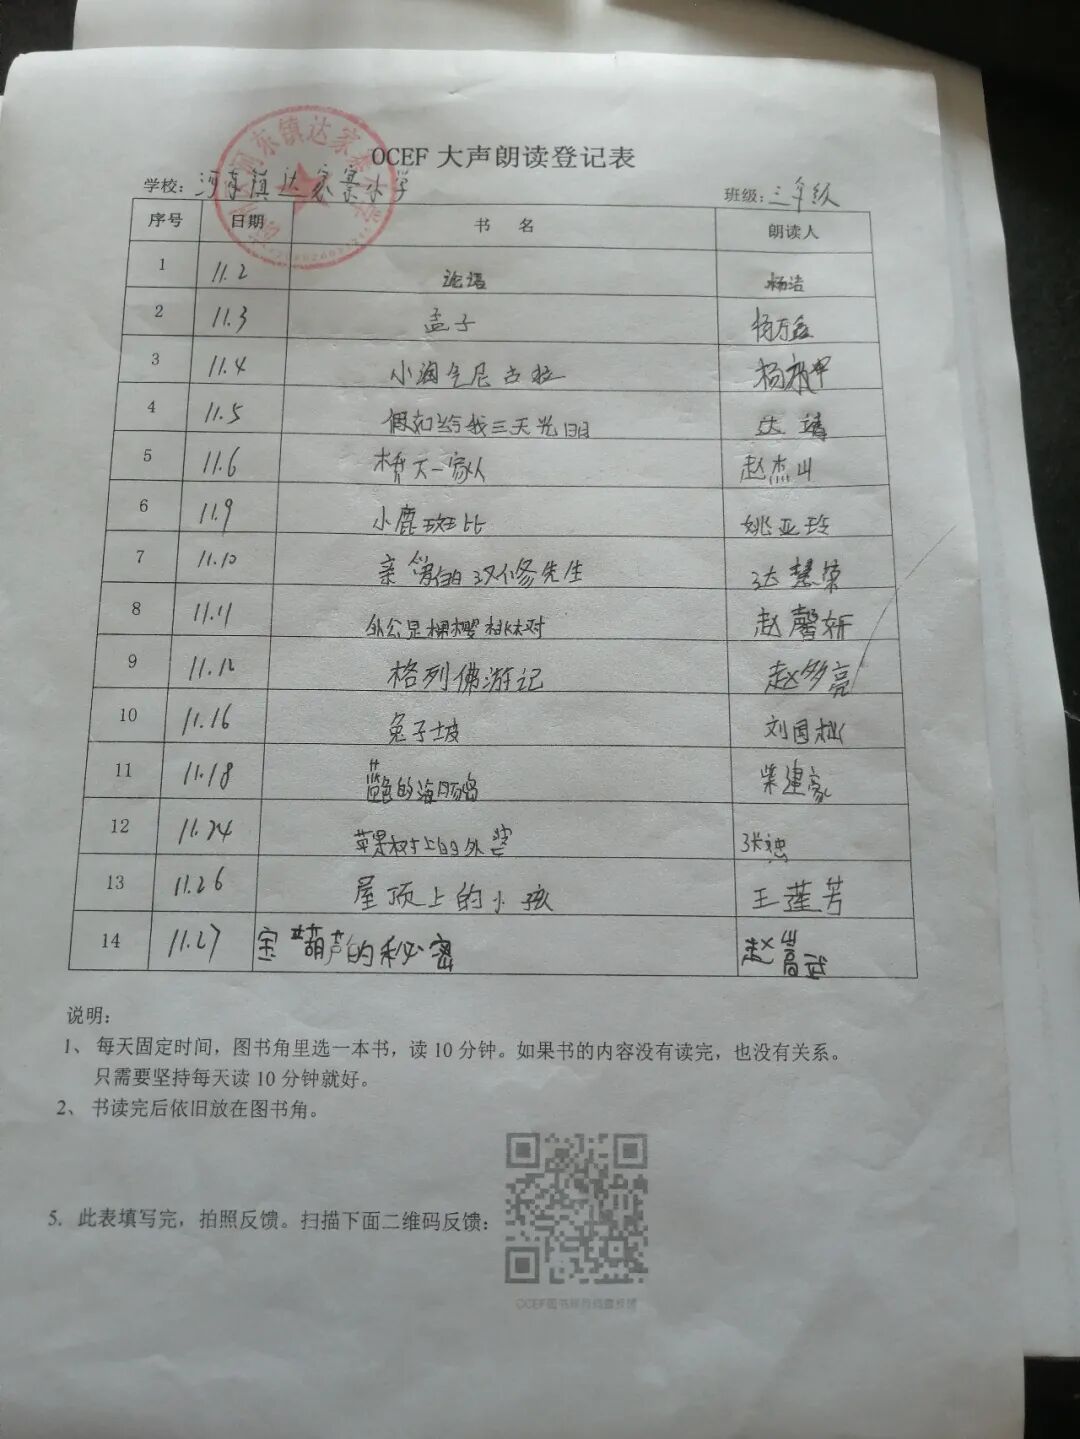 OCEF 大声朗读登记表
学校: 河东镇达家寨小学 班级: 三年级
序号 日期 书 名 朗读人
1 11.2 论语 杨洁
2 11.3 孟子 杨万鑫
3 11.4 小淘气尼古拉 杨
4 11.5 假如给我三天光明 达靖
5 11.6 桥大一家人 赵杰山
6 11.9 小鹿斑比 姚亚玲
7 11.10 亲爱的汉修先生 达慧荣
8 11.11 外公是棵樱桃树 赵馨妍
9 11.12 格列佛游记 赵多亮
10 11.16 兔子坡 刘国
11 11.18 蓝色的海豚岛 柴建豪
12 11.24 苹果树上的外婆 张
13 11.26 屋顶上的小孩 王莲芳
14 11.27 宝葫芦的秘密 赵嵩武
说明:
1、 每天固定时间，图书角里选一本书，读 10 分钟。如果书的内容没有读完，也没有关系。
只需要坚持每天读 10 分钟就好。
2、 书读完后依旧放在图书角。
5. 此表填写完，拍照反馈。扫描下面二维码反馈：